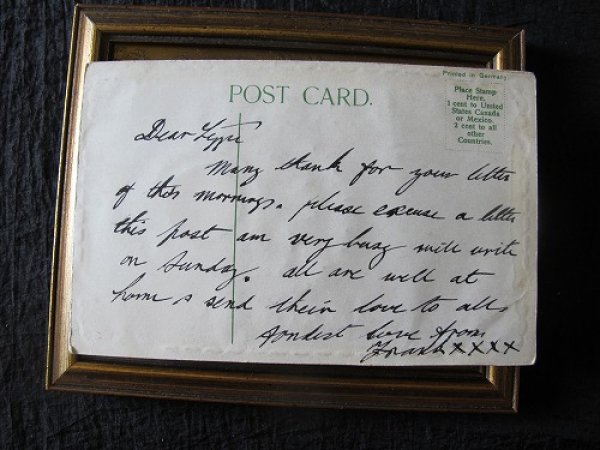 Printed in Germany
POST CARD.
Place Stamp
Here.
1 cent to United
States Canada
or Mexico.
2 cent to all
other
Countries.
Dear
Many thank for your letter
of this mornings. please excuse a letter
this post am very busy will write
on Sunday. all are well at
home & send their love to all
fondest love from
Frank xxxx